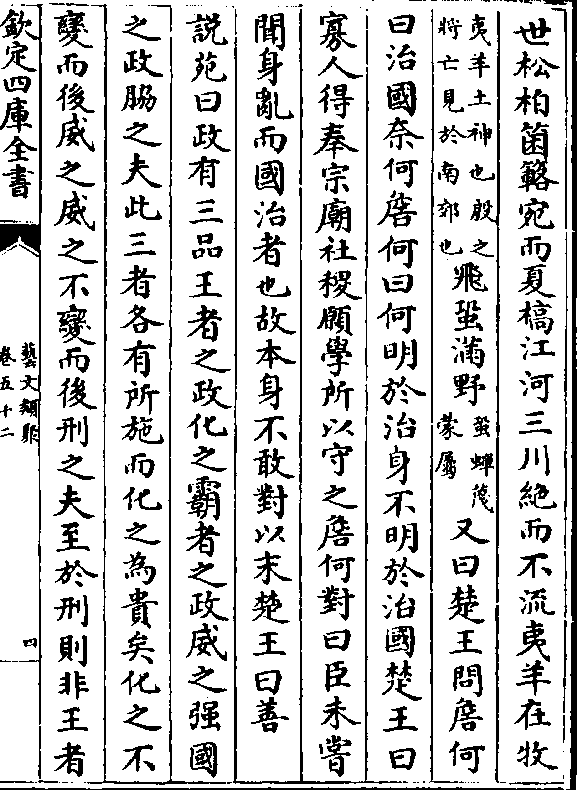 世松柏箘簵宛而夏槁江河三川絶而不流夷羊在牧
夷羊土神也殷之
將亡見於南郊也
飛蛩滿野
蛩蟬蔑
蒙屬
又曰楚王問詹何
曰治國奈何詹何曰何明於治身不明於治國楚王曰
寡人得奉宗廟社稷願學所以守之詹何對曰臣未嘗
聞身亂而國治者也故本身不敢對以末楚王曰善
説苑曰政有三品王者之政化之霸者之政威之强國
之政脇之夫此三者各有所施而化之為貴矣化之不
變而後威之威之不變而後刑之夫至於刑則非王者
欽定四庫全書
藝文類聚
卷五十二
四